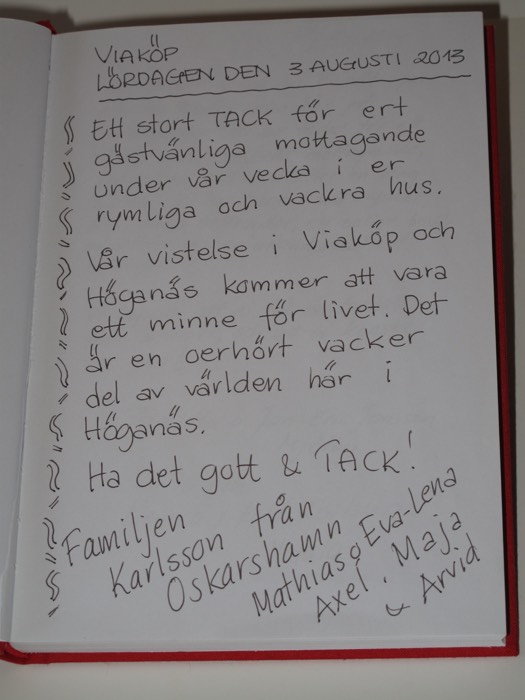 VIAKÖP
LÖRDAGEN DEN 3 AUGUSTI 2013
Ett stort TACK för ert
gästvänliga mottagande
under vår vecka i er
rymliga och vackra hus.
Vår vistelse i Viaköp och
Höganäs kommer att vara
ett minne för livet. Det
är en oerhört vacker
del av världen här i
Höganäs.
Ha det gott & TACK!
Familjen
Karlsson från
Oskarshamn
Mathias o Eva-Lena
Axel, Maja
& Arvid